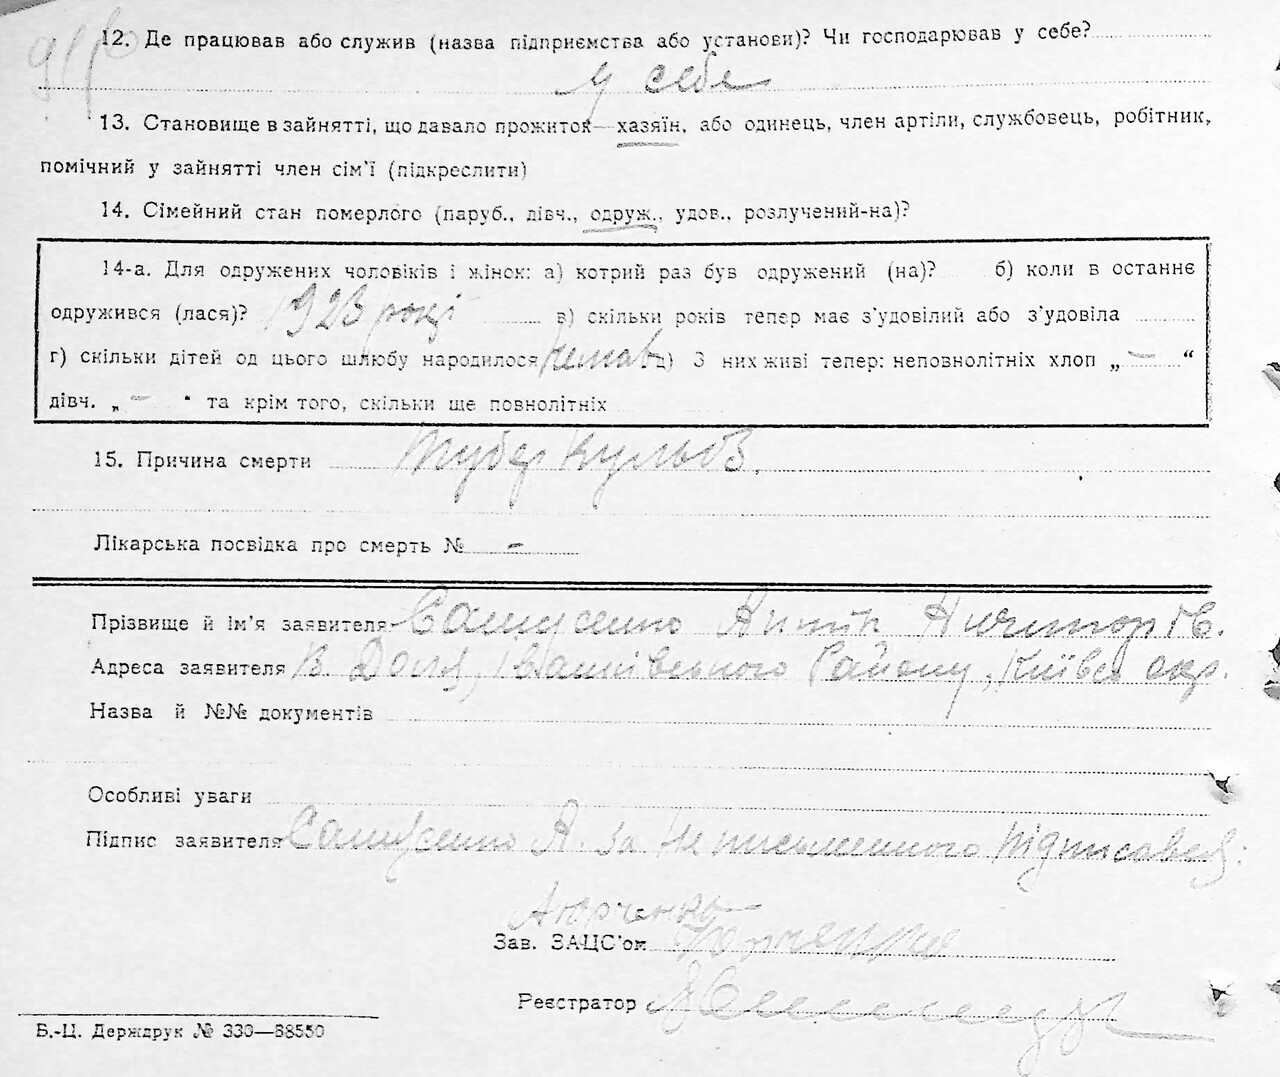 12. Де працював або служив (назва підприємства або установи)? Чи господарював у себе?
у себе
13. Становище в зайнятті, що давало прожиток—хазяїн, або одинець, член артіли, службовець, робітник,
помічний у зайнятті член сім'ї (підкреслити)
14. Сімейний стан померлого (паруб., дівч., одруж., удов., розлучений-на)?
14-а. Для одружених чоловіків і жінок: а) котрий раз був одружений (на)? б) коли в останнє
одружився (лася)? 1923 році в) скільки років тепер має з'удовілий або з'удовіла
г) скільки дітей од цього шлюбу народилося немає д) З них живі тепер: неповнолітніх хлоп „ — “
дівч. „ — “ та крім того, скільки ще повнолітніх
15. Причина смерти туберкульоз.
Лікарська посвідка про смерть № -
Прізвище й ім'я заявителя Самусенко Антін
Адреса заявителя В. Доля, Району, Київс окр.
Назва й №№ документів
Особливі уваги
Підпис заявителя Самусенко А. за неписьменного підписався:
Юрченко
Зав. ЗАЦС'ом Юрченко
Реєстратор
Б.-Ц. Держдрук № 330—88550